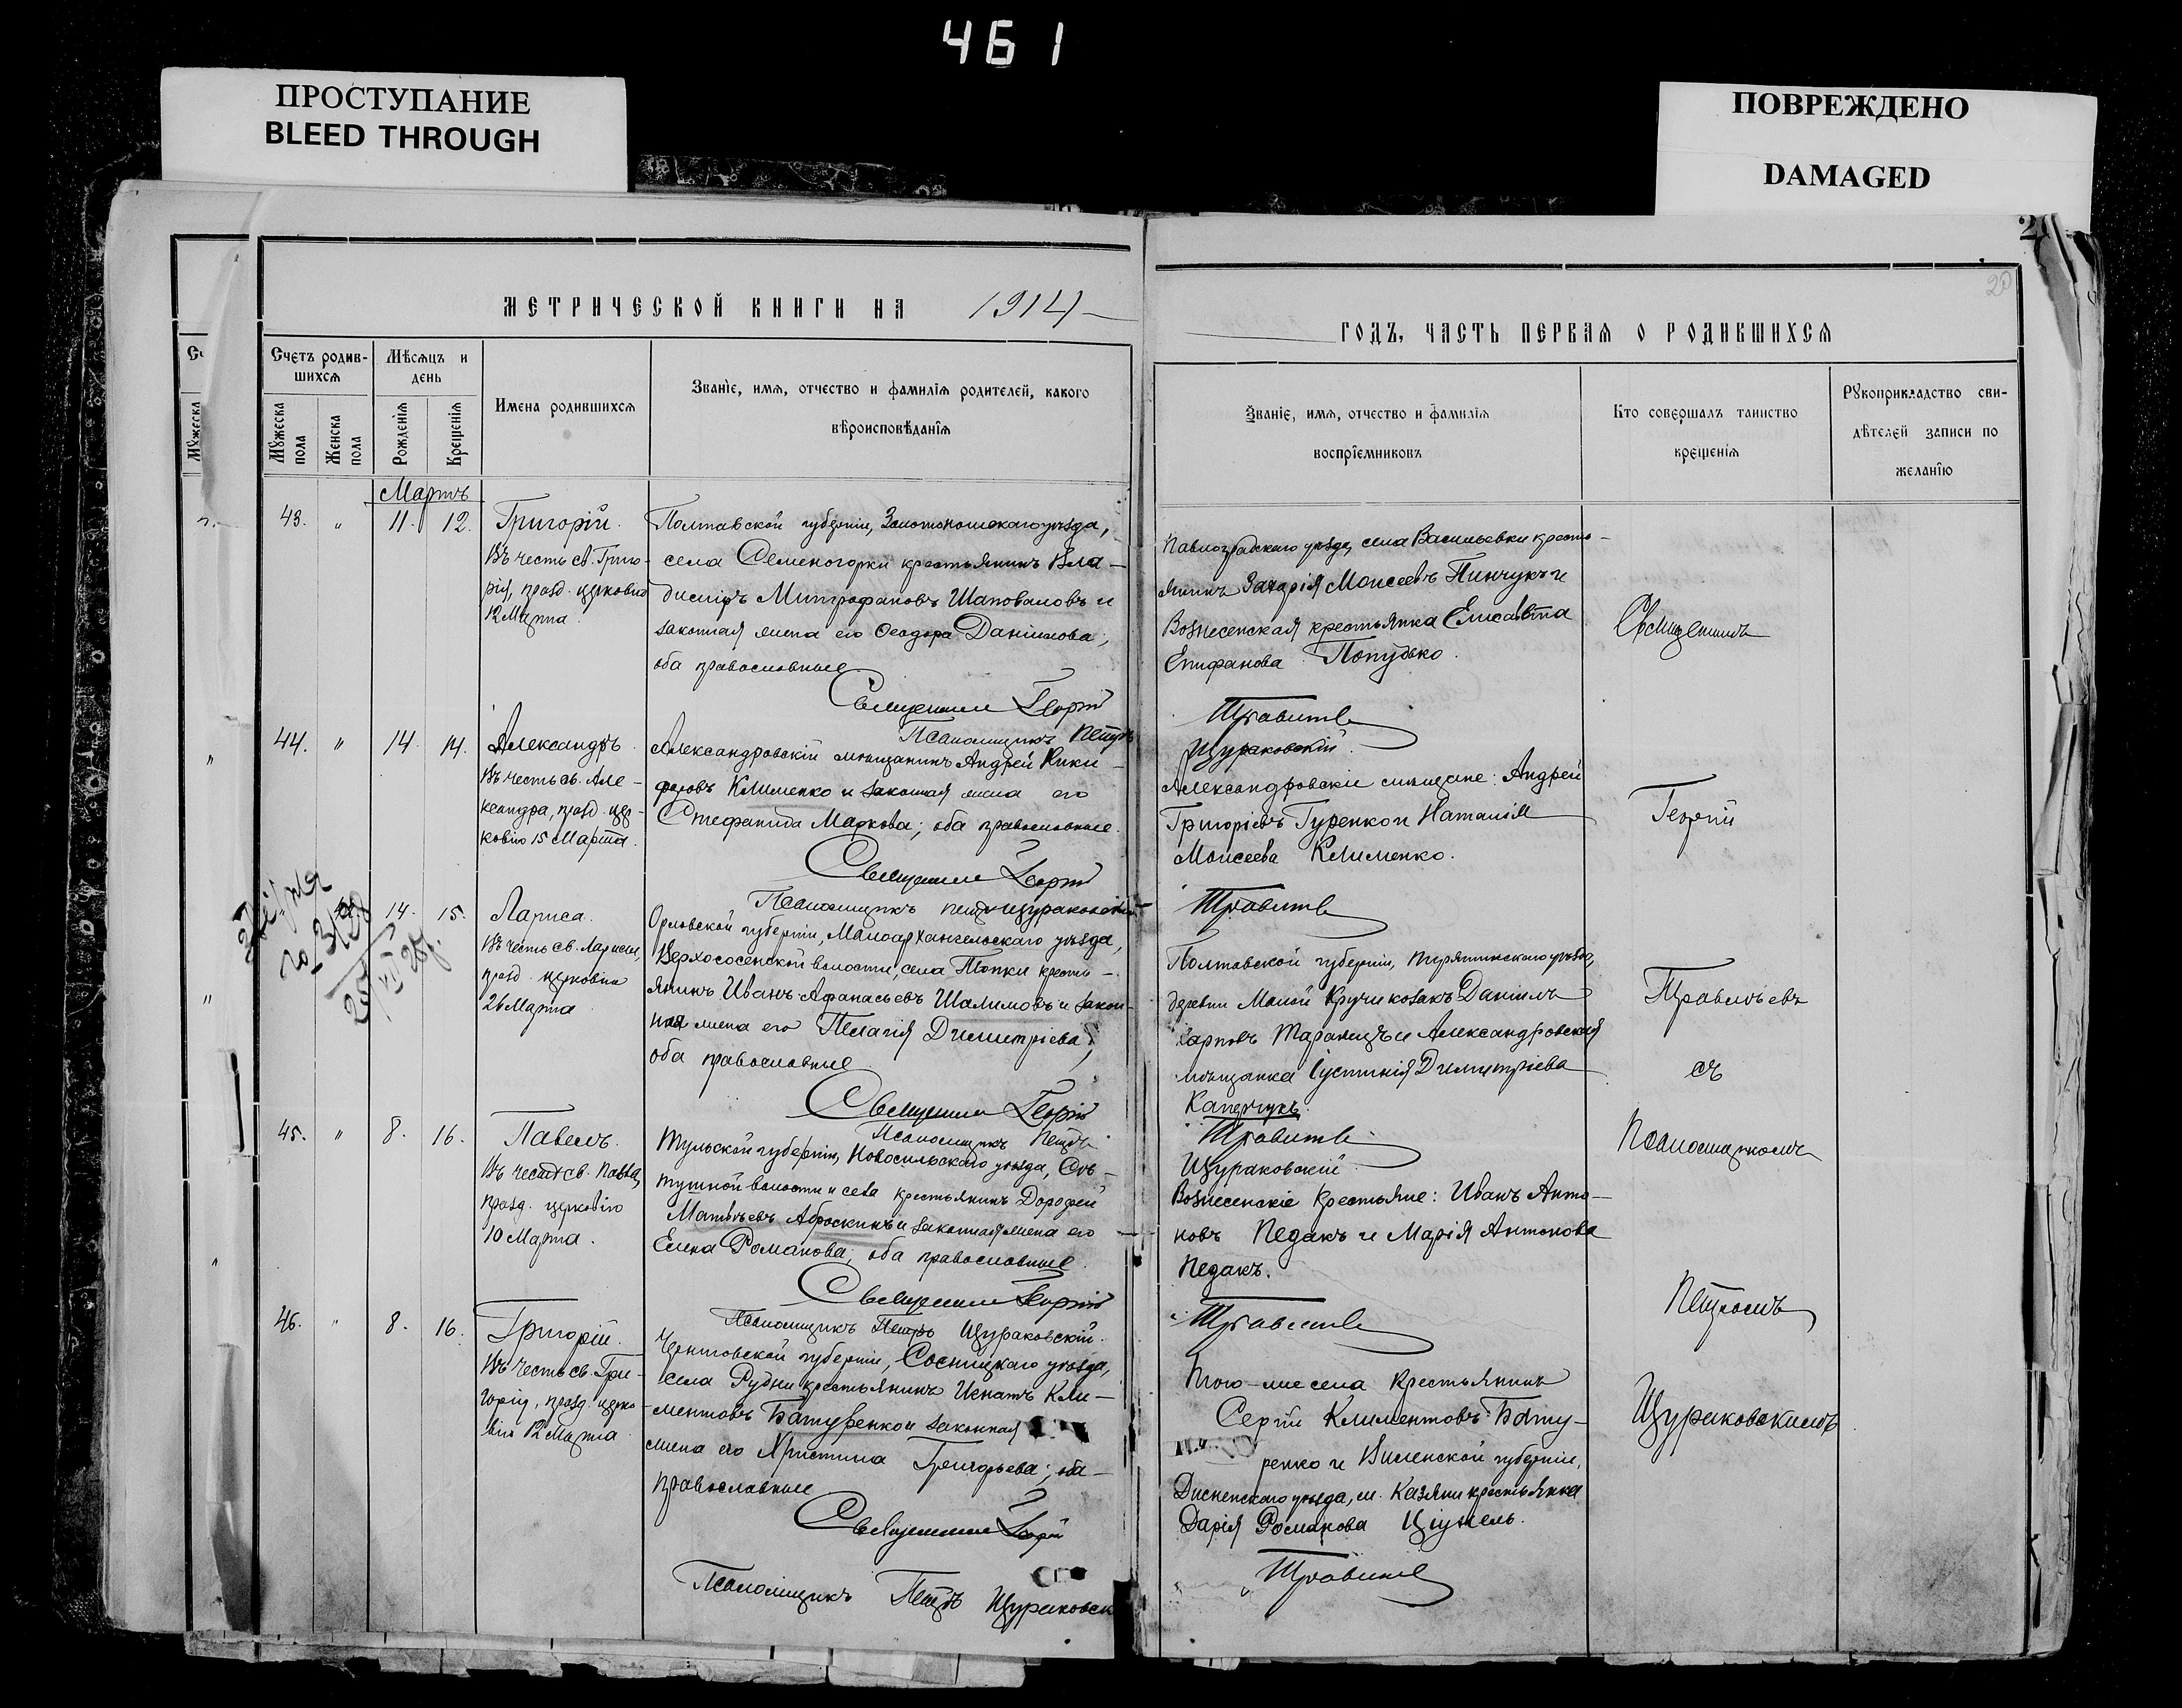 461
ПРОСТУПАНИЕ
BLEED THROUGH
ПОВРЕЖДЕНО
DAMAGED
20
МЕТРИЧЕСКОЙ КНИГИ НА 1914
Счетъ родив-
шихся
Мѣсяцъ и
день
Мужеска
пола
Женска
пола
Рожденія
Крещенія
Имена родившихся
Званіе, имя, отчество и фамилія родителей, какого
вѣроисповѣданія
Мартъ
43. " 11. 12. Григорій.
Въ честь св. Григо-
рія, празд. церковію
12 Марта.
Полтавской губерніи, Золотоношскаго уѣзда,
села Семеногорки крестьянинъ Вла-
диміръ Митрофановъ Шаповаловъ и
законная жена его Ѳеодора Даніилова;
оба православные
Священникъ Георгій
Псаломщикъ Петръ
44. " 14. 14. Александръ.
Въ честь св. Але-
ксандра, празд. цер-
ковію 15 Марта.
Александровскій мѣщанинъ Андрей Ники-
форовъ Клименко и законная жена его
Стефанида Маркова; оба православные.
Священникъ Георгій
Псаломщикъ Петръ Щураковскій
14. 15. Лариса.
Въ честь св. Ларисы,
празд. церковію
26 Марта
Орловской губерніи, Малоархангельскаго уѣзда,
Верхососенской волости, села Топки кресть-
янинъ Иванъ Афанасьевъ Шалимовъ и закон-
ная жена его Пелагія Димитріева;
оба православные
Священникъ Георгій
Псаломщикъ Петръ
45. " 8. 16. Павелъ.
Въ честь св. Павла,
празд. церковію
10 Марта.
Тульской губерніи, Новосильскаго уѣзда,
волости и села крестьянинъ Дорофей
Матвѣевъ Аброскинъ и законная жена его
Елена Романова; оба православные.
Священникъ Георгій
Псаломщикъ Петръ Щураковскій.
46. " 8. 16. Григорій.
Въ честь св. Гри-
горія, празд. церко-
вію 12 Марта
Черниговской губерніи, Сосницкаго уѣзда,
села Рудни крестьянинъ Игнатъ Кли-
ментовъ Батуренко и законная
жена его Христина Григорьева; оба
православные
Священникъ Георгій
Псаломщикъ Петръ Щураковск
ГОДЪ, ЧАСТЬ ПЕРВАЯ О РОДИВШИХСЯ
Званіе, имя, отчество и фамилія
воспріемниковъ
Кто совершалъ таинство
крещенія
Рукоприкладство сви-
дѣтелей записи по
желанію
Павлоградскаго уѣзда, села Васильевки кресть-
янинъ Захарія Моисеевъ Пинчукъ и
Вознесенская крестьянка Елисавета
Епифанова Попудько.
Травитъ
Щураковскій.
Александровскіе мѣщане: Андрей
Григорьевъ Гуренко и Наталія
Моисеева Клименко.
Полтавской губерніи, Пирятинскаго уѣзда,
деревни Малой Кручи козакъ Даніилъ
Карповъ Таранецъ и Александровская
мѣщанка Іустинія Димитріева
Щураковскій
Вознесенскіе крестьяне: Иванъ Анто-
новъ Педакъ и Марія Антонова
Педакъ.
Того-же села крестьянинъ
Сергій Климентовъ Бату-
ренко и Виленской губерніи,
Дисненскаго уѣзда, м. Казяни крестьянка
Дарія Романова
Священникъ
Георгій
съ
Псаломщикомъ
Петромъ
Щураковскимъ